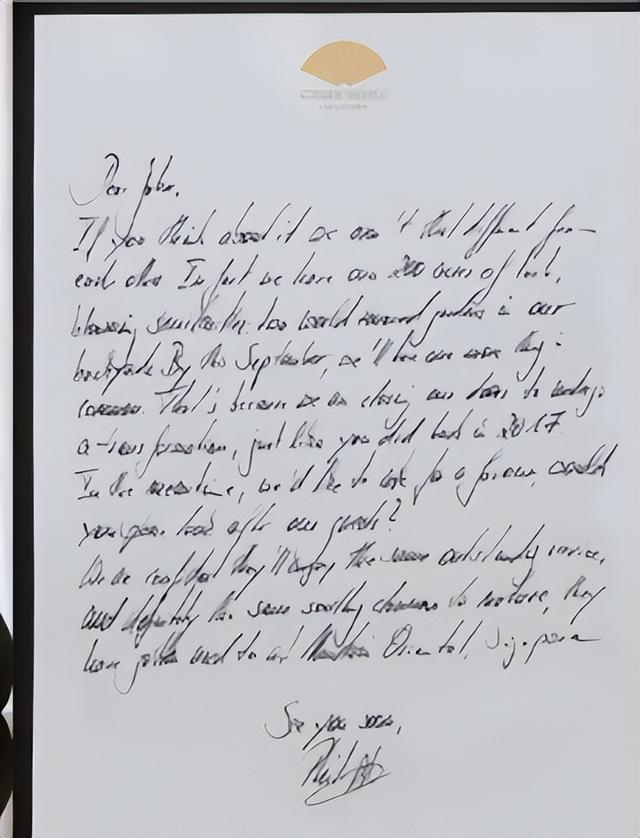 Dear John,
If you think about it we aren't that different from
each other In fact we have over 200 acres of lush,
blooming, world renowned gardens in our
backyards By this September, we'll have one more thing in
common. That's because we are closing our doors to undergo
a transformation, just like you did back in 2017.
In the meantime, we'd like to ask for a favour, would
you please look after our guests?
We are confident they'll enjoy the same outstanding service,
and definitely the same to nature, they
have gotten used to at Mandarin Oriental, Singapore
See you soon,